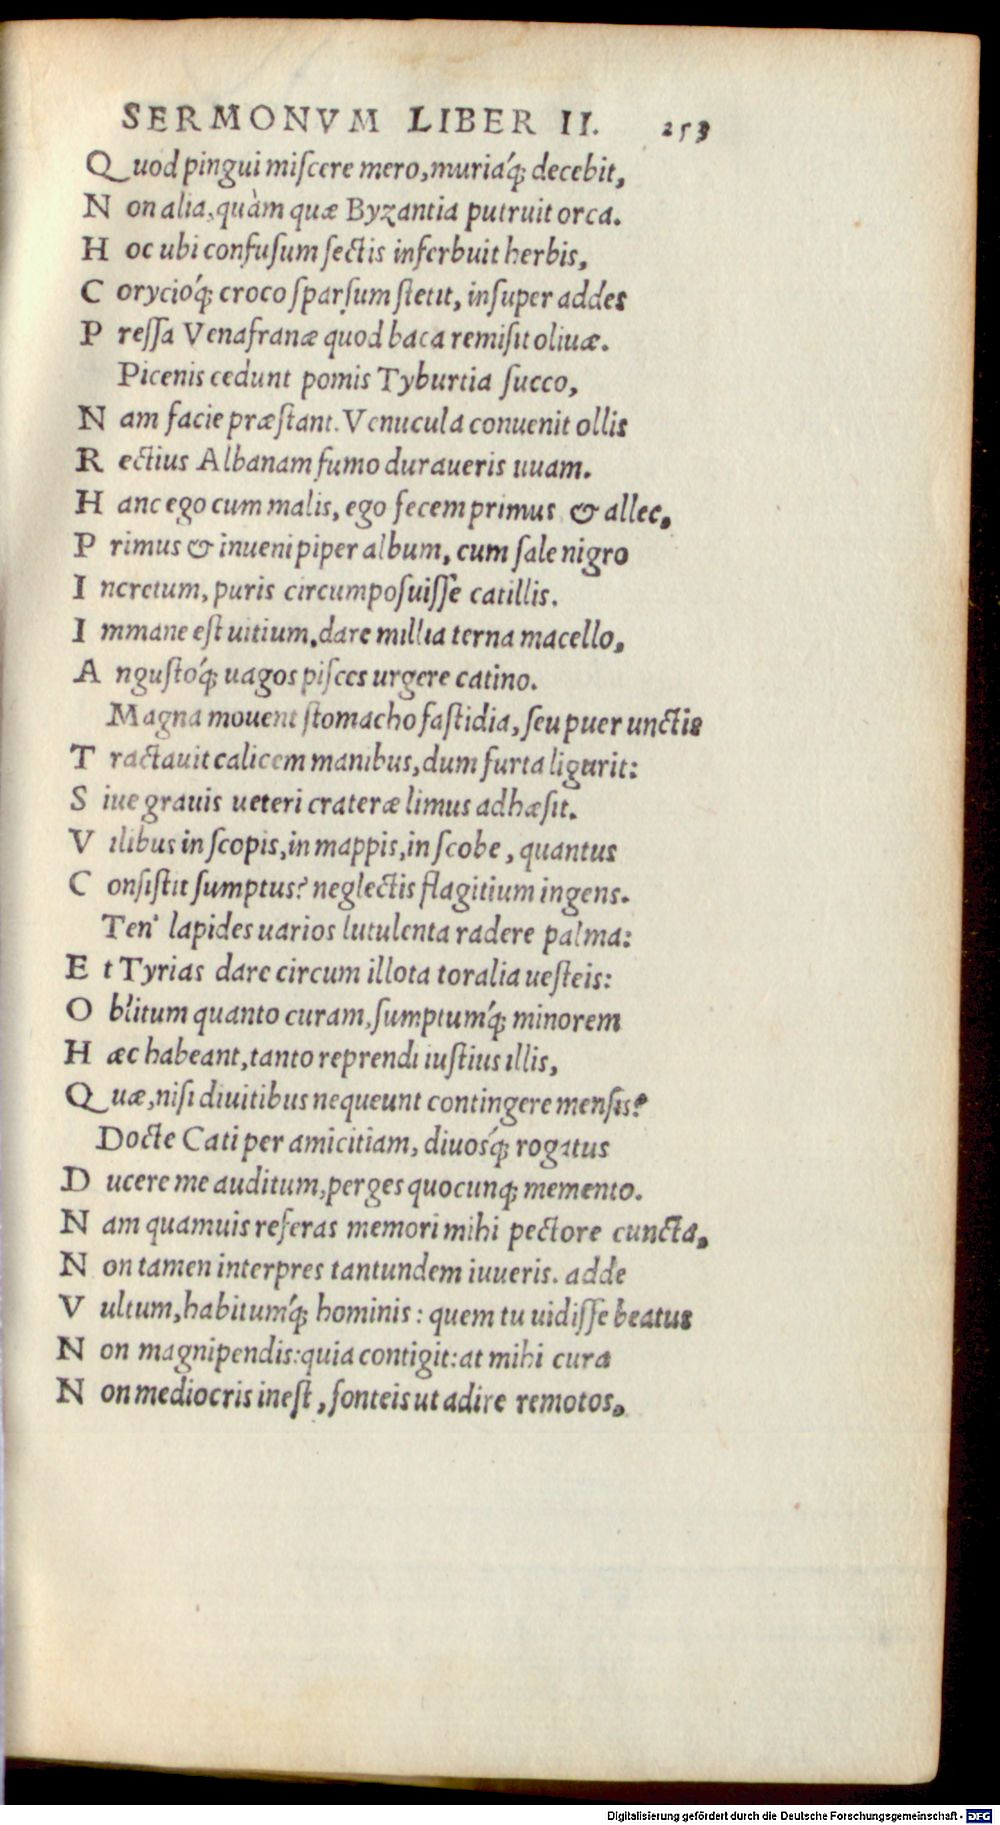 SERMONVM LIBER II. 253
Quod pingui miſcere mero, muriáq; decebit,
Non alia, quàm quæ Byzantia putruit orca.
Hoc ubi confuſum ſectis inferbuit herbis,
Corycióq; croco ſparſum ſtetit, inſuper addes
Preſſa Venafranæ quod baca remiſit oliuæ.
Picenis cedunt pomis Tyburtia ſucco,
Nam facie præſtant. Venucula conuenit ollis
Rectius Albanam fumo duraueris uuam.
Hanc ego cum malis, ego fecem primus & allec,
Primus & inueni piper album, cum ſale nigro
Incretum, puris circumpoſuiſſe catillis.
Immane eſt uitium, dare millia terna macello,
Anguſtóq; uagos piſces urgere catino.
Magna mouent ſtomacho faſtidia, ſeu puer unctis
Tractauit calicem manibus, dum furta ligurit:
Siue grauis ueteri crateræ limus adhæſit.
Vilibus in ſcopis, in mappis, in ſcobe, quantus
Conſiſtit ſumptus? neglectis flagitium ingens.
Ten' lapides uarios lutulenta radere palma:
Et Tyrias dare circum illota toralia ueſteis:
Oblitum quanto curam, ſumptumq́; minorem
Hæc habeant, tanto reprendi iuſtius illis,
Quæ, niſi diuitibus nequeunt contingere menſis?
Docte Cati per amicitiam, diuosq́; rogatus
Ducere me auditum, perges quocunq; memento.
Nam quamuis referas memori mihi pectore cuncta,
Non tamen interpres tantundem iuueris. adde
Vultum, habitumq́; hominis: quem tu uidiſſe beatus
Non magnipendis: quia contigit: at mihi cura
Non mediocris ineſt, fonteis ut adire remotos,
Digitalisierung gefördert durch die Deutsche Forschungsgemeinschaft - DFG